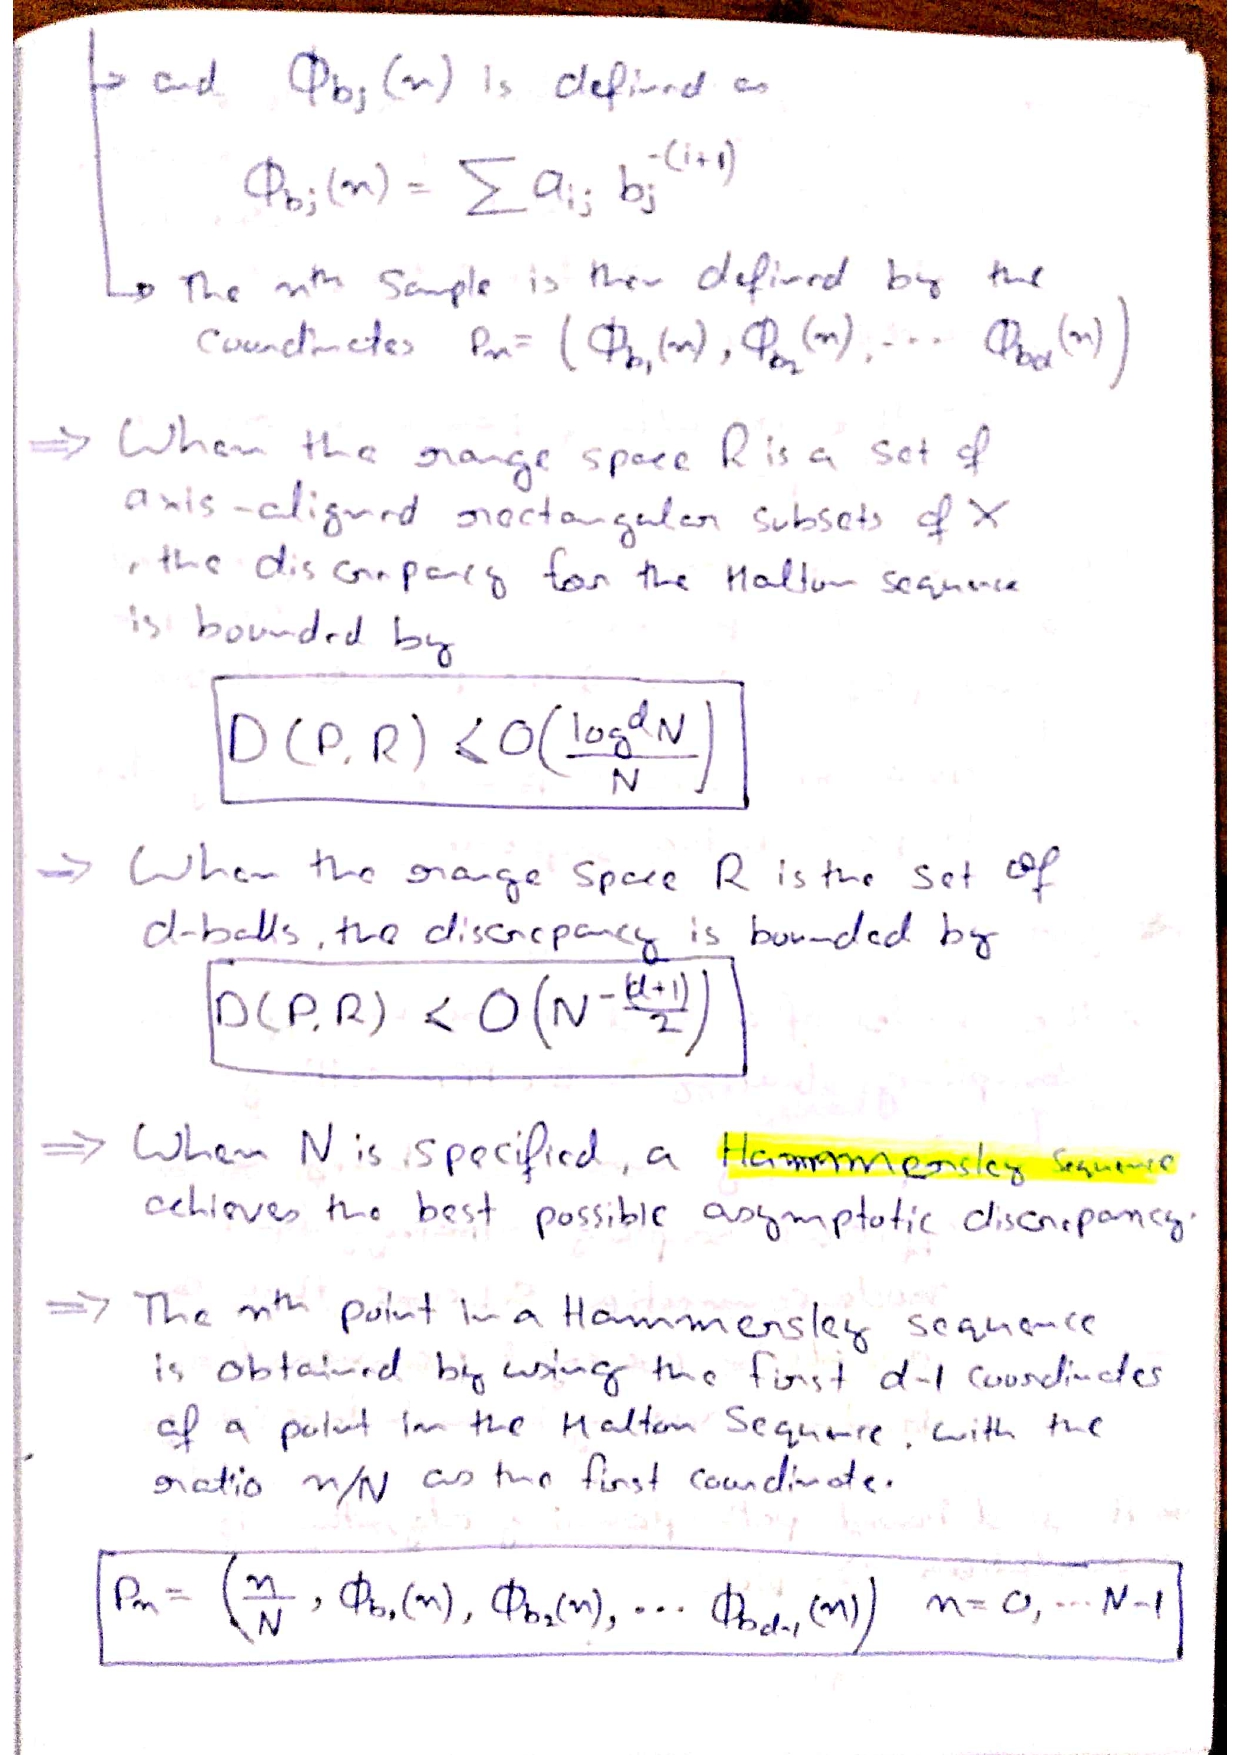 → and Φbj(n) is defined as
Φbj(n) = Σ aij bj^-(i+1)
→ The nth Sample is then defined by the
coordinates Pn = (Φb1(n), Φb2(n), .... Φbd(n))
⇒ When the range space R is a set of
axis-aligned rectangular subsets of X
, the discrepancy for the Halton sequence
is bounded by
D(P,R) ≤ O(log^d N / N)
⇒ When the range space R is the set of
d-balls, the discrepancy is bounded by
D(P,R) ≤ O(N^-(d+1)/2)
⇒ When N is specified, a Hammmersley Sequence
achieves the best possible asymptotic discrepancy.
⇒ The nth point in a Hammersley sequence
is obtained by using the first d-1 coordinates
of a point in the Halton Sequence, with the
ratio n/N as the first coordinate.
Pn = (n/N, Φb1(n), Φb2(n), ... Φbd-1(n)) n = 0, ... N-1